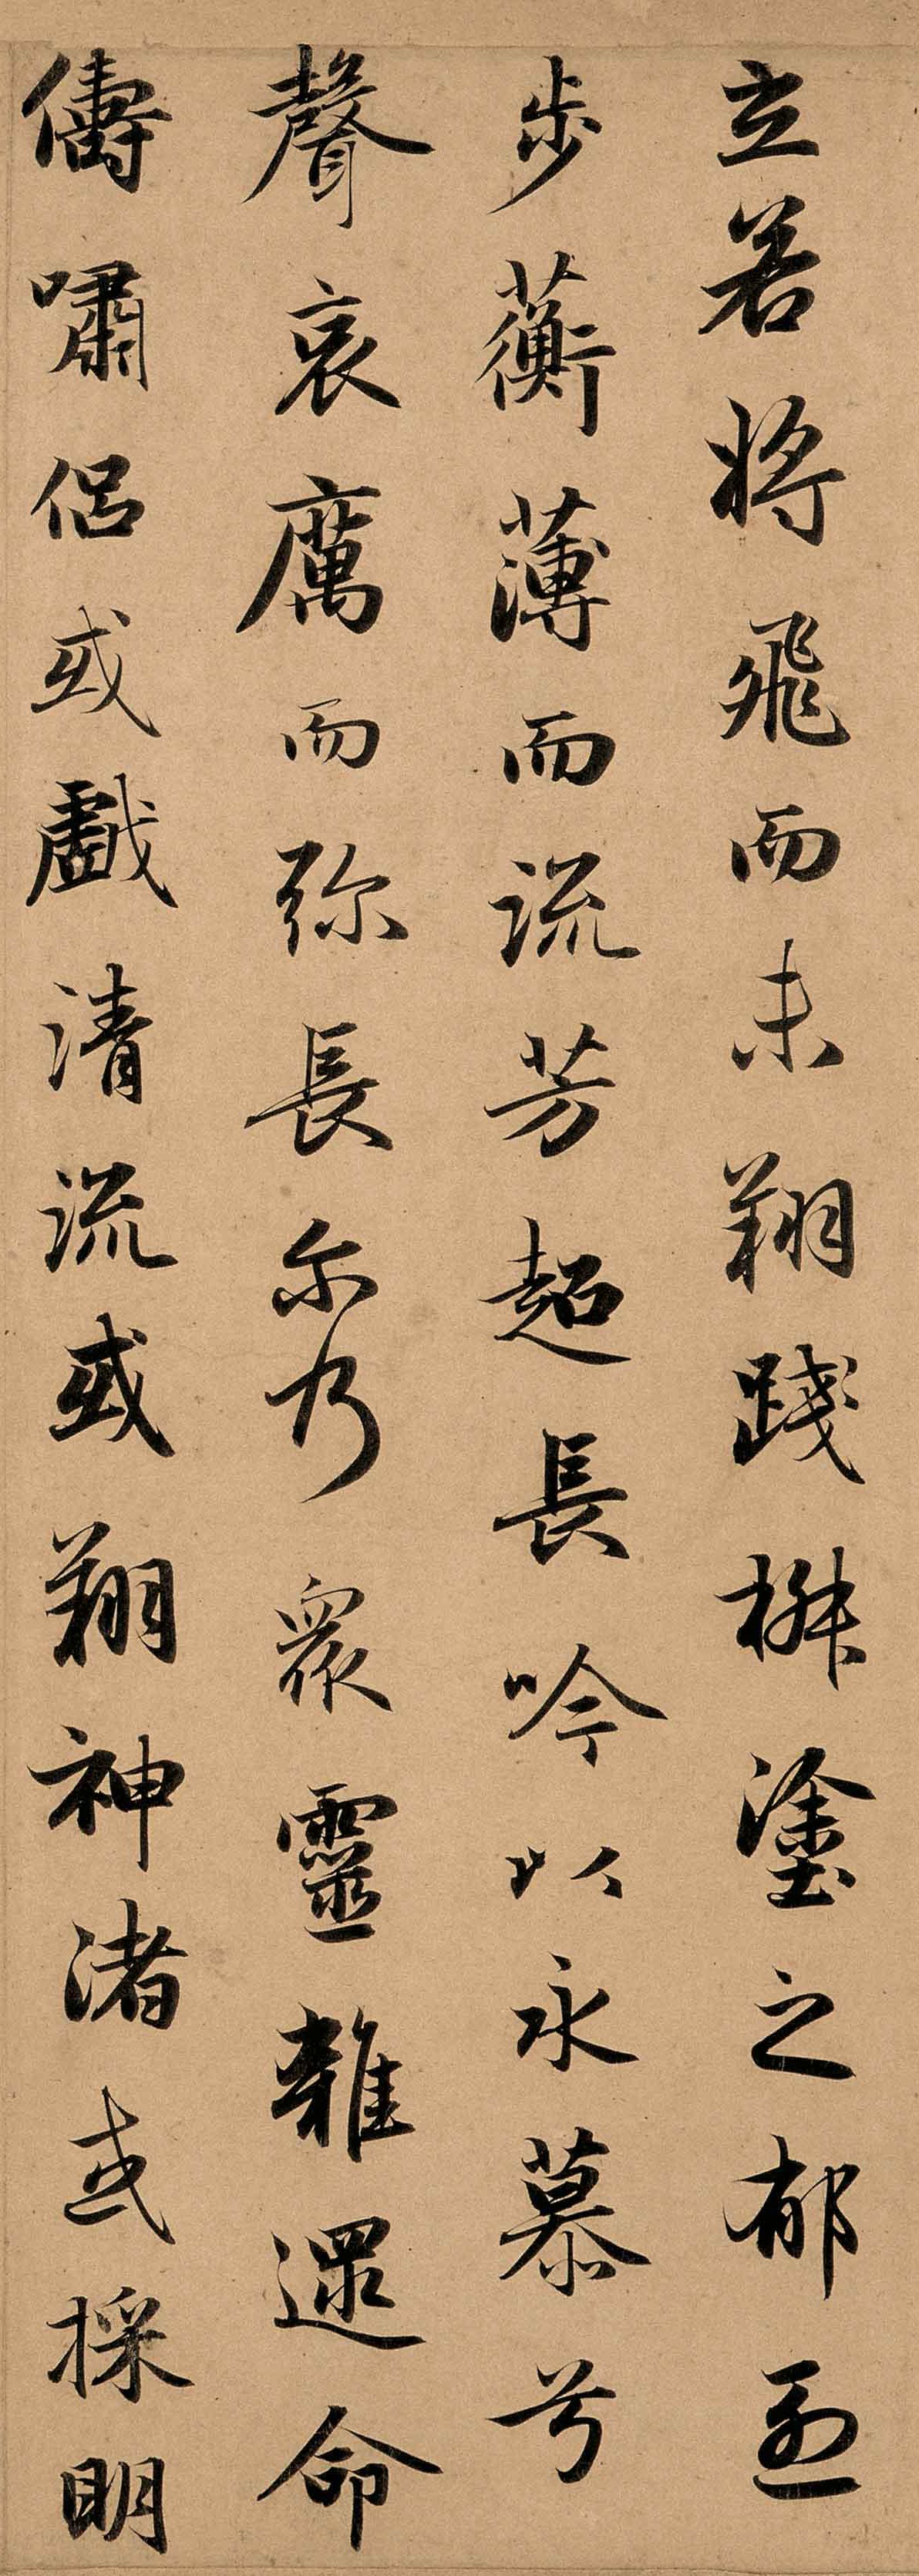 立若将飛而未翔踐椒塗之郁烈
步蘅薄而流芳超長吟以永慕兮
聲哀厲而弥長尔乃眾靈雜遝命
儔嘯侶或戲清流或翔神渚或採明